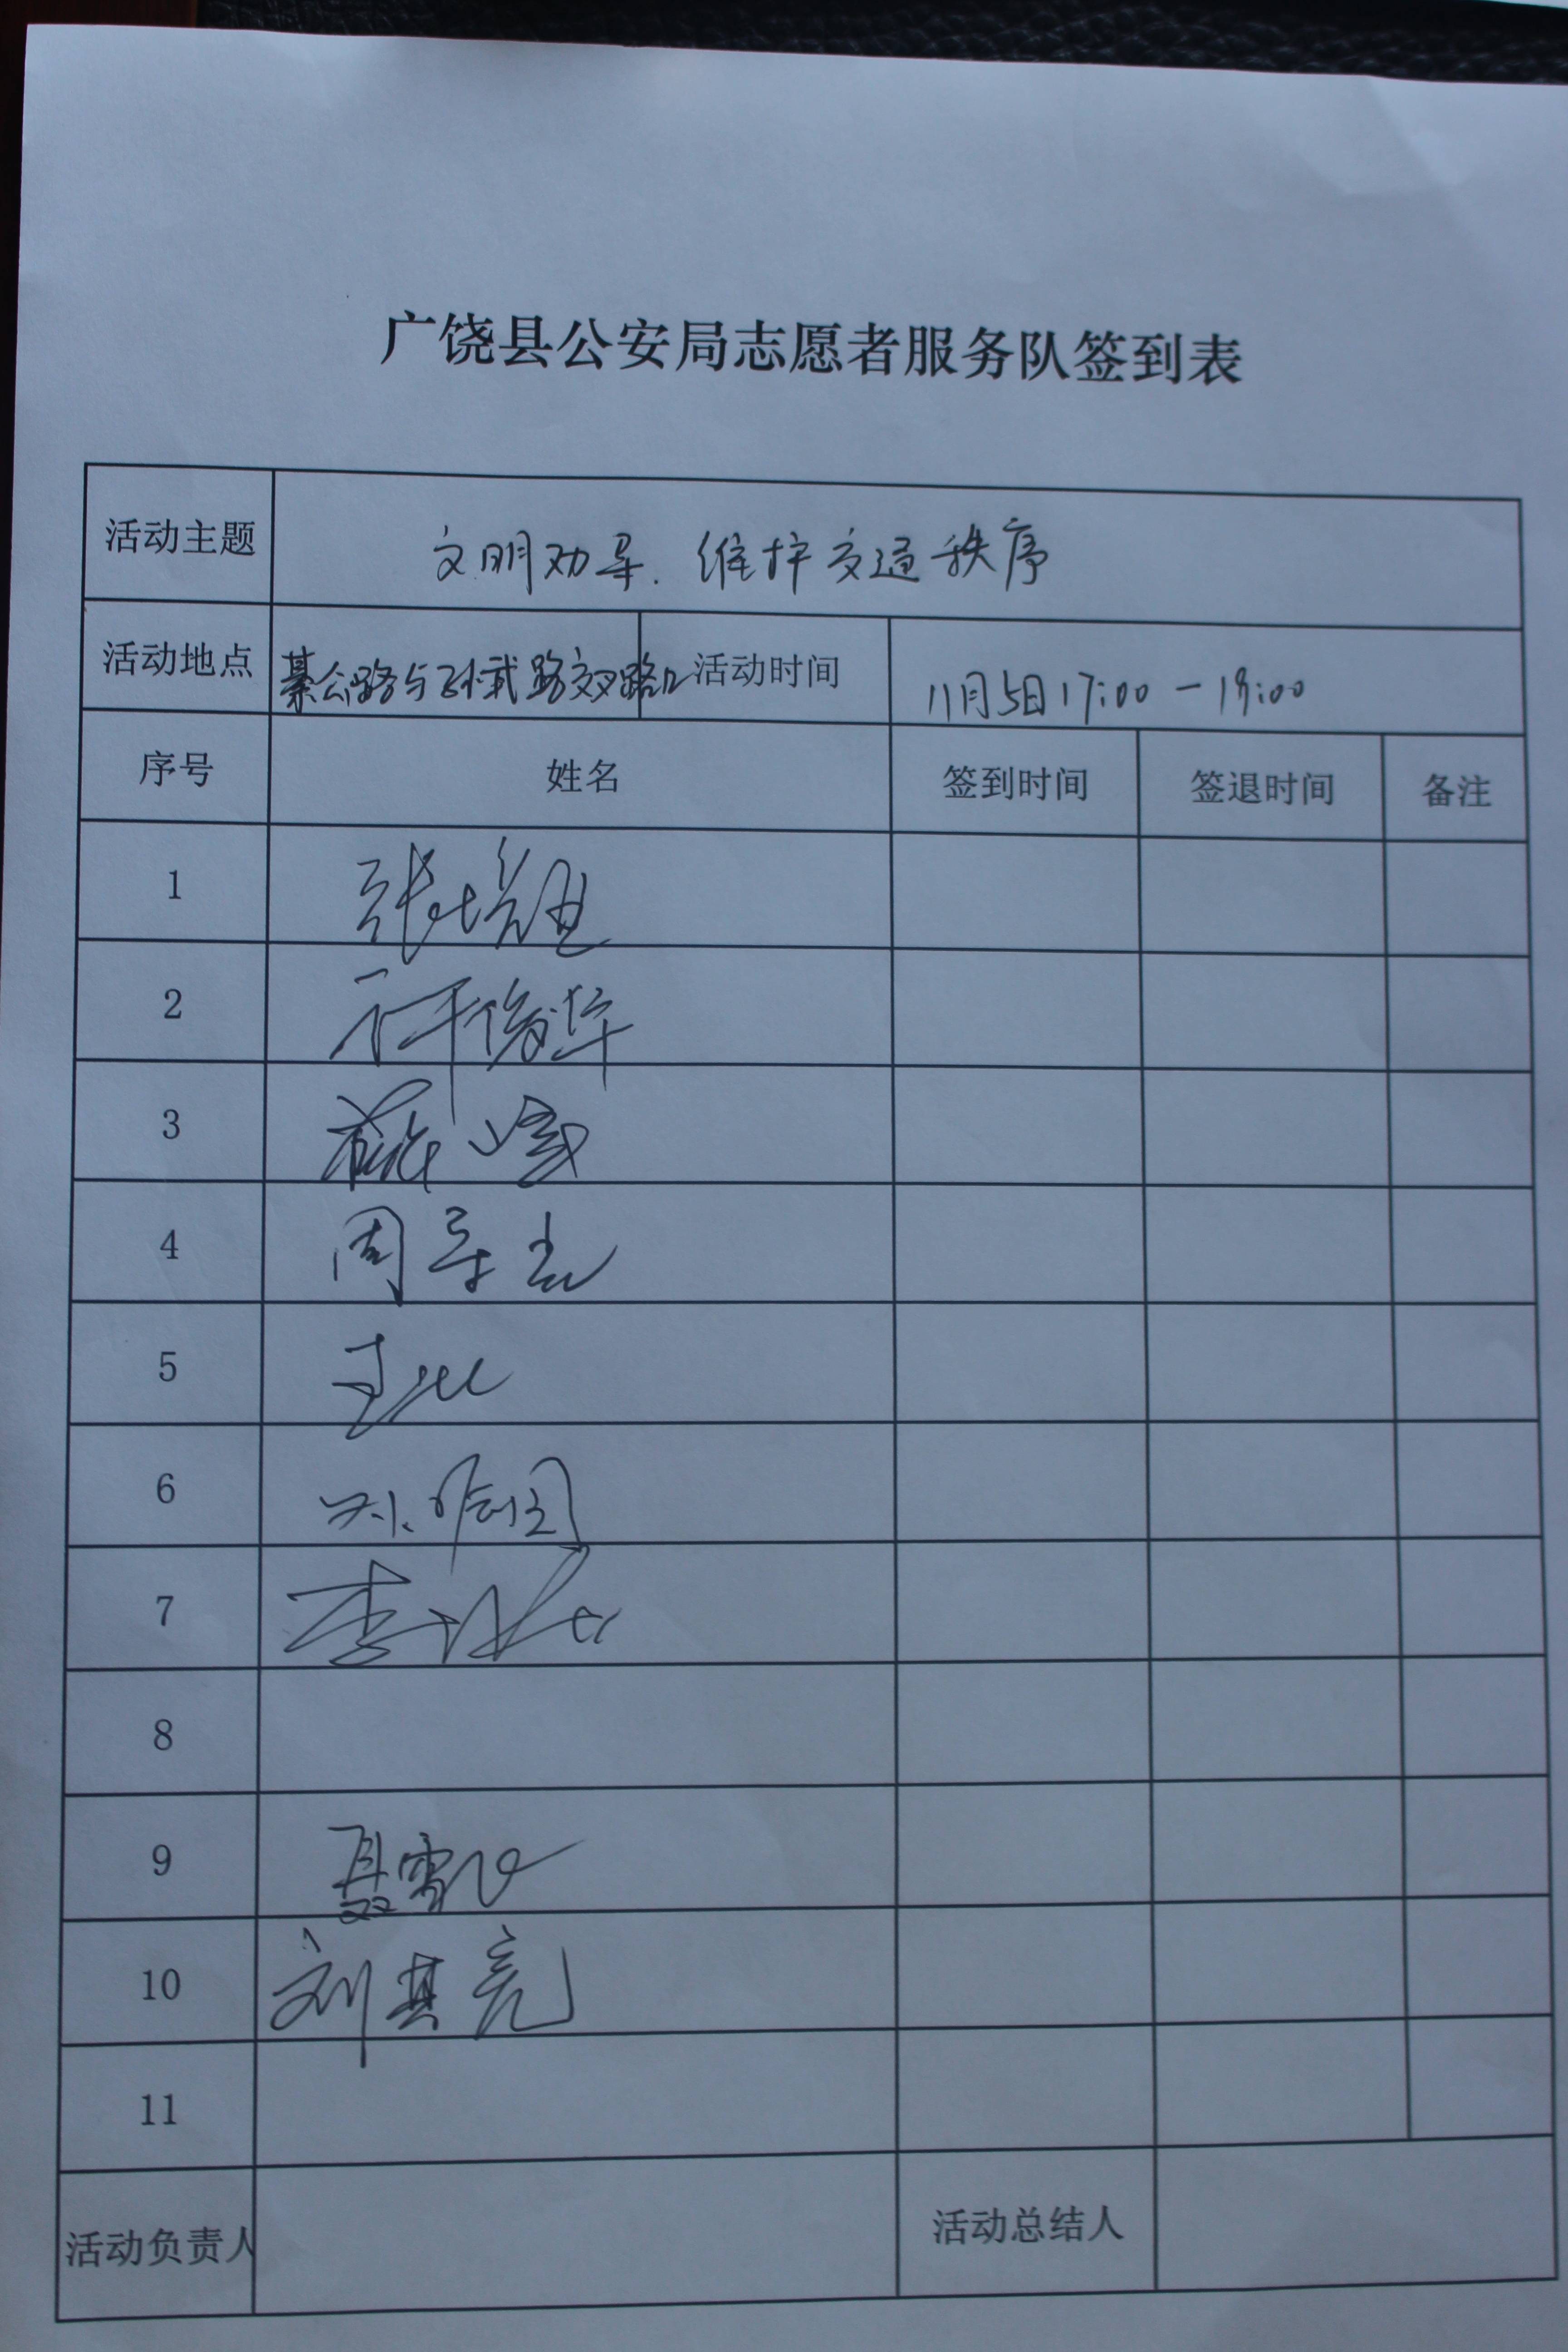 广饶县公安局志愿者服务队签到表
活动主题 文明劝导、维护交通秩序
活动地点 綦公路与孙武路交叉路口 活动时间 11月5日17:00-19:00
序号 姓名 签到时间 签退时间 备注
1 张
2 华
3 薛
4 周
5
6
7 李
8
9 聂雪
10 刘其亮
11
活动负责人 活动总结人